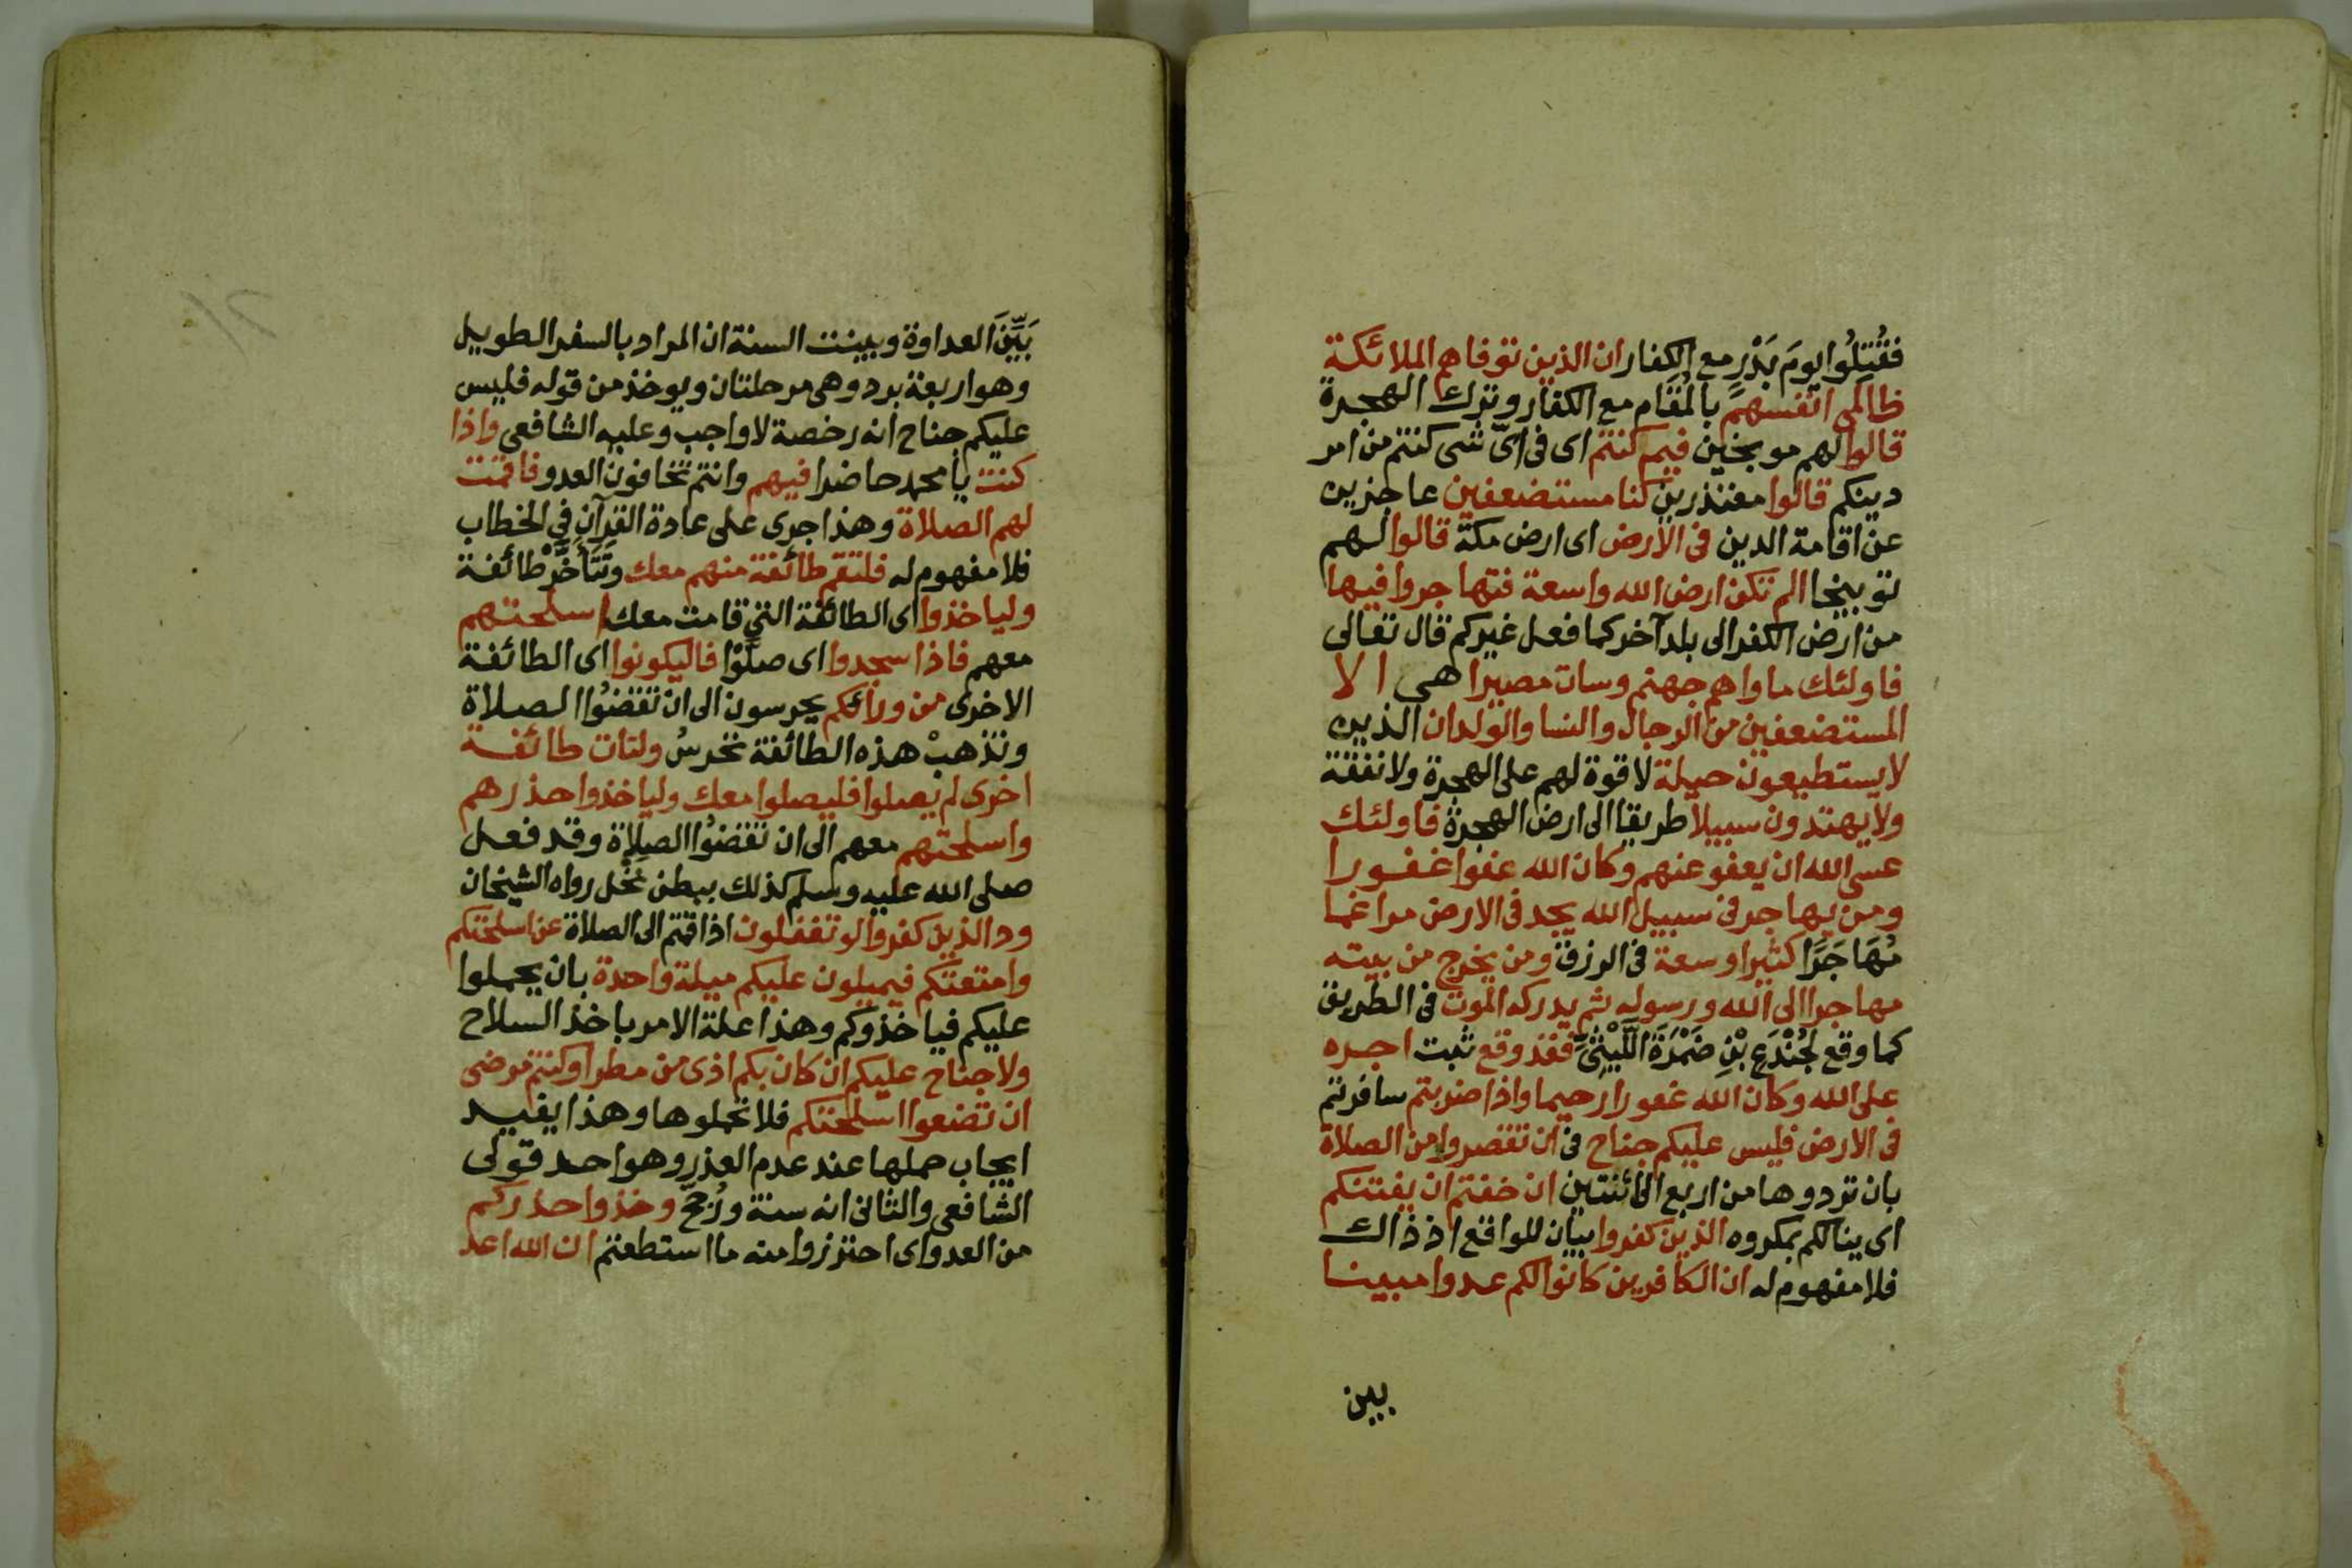 فقُتِلُوا يومَ بَدْرٍ مع الكفار ان الذين توفاهم الملائكة
ظالمى انفسهم بالمُقَام مع الكفار وترك الهجرة
قالوا لهم موبخين فيم كنتم اى فى اىّ شى كنتم من امر
دينكم قالوا معتذرين كنا مستضعفين عاجزين
عن اقامة الدين فى الارض اى ارض مكة قالوا لهم
توبيخا الم تكن ارض الله واسعة فتهاجروا فيها
من ارض الكفر الى بلد آخر كما فعل غيركم قال تعالى
فاولئك ماواهم جهنم وسات مصيرا هى الا
المستضعفين من الرجال والنسا والولدان الذين
لا يستطيعون حيلة لا قوة لهم على الهجرة ولا نفقة
ولا يهتدون سبيلا طريقا الى ارض الهجرة فاولئك
عسى الله ان يعفو عنهم وكان الله عفوا غفورا
ومن يهاجر فى سبيل الله يجد فى الارض مراغما
مُهَاجَرًا كثيرا وسعة فى الرزق ومن يخرج من بيته
مهاجرا الى الله ورسوله ثم يدركه الموت فى الطريق
كما وقع لجُنْدَعِ بْنِ ضَمْرَةَ اللَّيْثِىّ فقد وقع ثبت اجره
على الله وكان الله غفورا رحيما واذا ضربتم سافرتم
فى الارض فليس عليكم جناح فى ان تقصروا من الصلاة
بان تردوها من اربع الى اثنتين ان خفتم ان يفتنكم
اى ينالكم بمكروه الذين كفروا بيان للواقع اذ ذاك
فلا مفهوم له ان الكافرين كانوا لكم عدوا مبينا
بين
بَيِّنَ العداوة وبينت السنة ان المراد بالسفر الطويل
وهو اربعة برد وهى مرحلتان ويوخذ من قوله فليس
عليكم جناح انه رخصة لا واجب وعليه الشافعى واذا
كنت يا محمد حاضرا فيهم وانتم تخافون العدو فاقمت
لهم الصلاة وهذا جرى على عادة القرآن فى الخطاب
فلا مفهوم له فلتقم طائفة منهم معك وتَتَأَخَّرْ طائفة
ولياخذوا اى الطائفة التى قامت معك اسلحتهم
معهم فاذا سجدوا اى صلَّوْا فاليكونوا اى الطائفة
الاخرى من ورائكم يحرسون الى ان تقضُوا الصلاة
وتذهبْ هذه الطائفة تحرسُ ولتات طائفة
اخرى لم يصلوا فليصلوا معك ولياخذوا حذرهم
واسلحتهم معهم الى ان تقضُوا الصلاة وقد فعل
صلى الله عليه وسلم كذلك ببطن نخل رواه الشيخان
ود الذين كفروا لو تغفلون اذا قمتم الى الصلاة عن اسلحتكم
وامتعتكم فيميلون عليكم ميلة واحدة بان يحملوا
عليكم فياخذوكم وهذا علة الامر باخذ السلاح
ولا جناح عليكم ان كان بكم اذى من مطر او كنتم مرضى
ان تضعوا اسلحتكم فلا تحملوها وهذا يفيد
ايجاب حملها عند عدم العذر وهو احد قولى
الشافعى والثانى انه سنة ورُجِّحَ وخذوا حذركم
من العدو اى احترزوا منه ما استطعتم ان الله اعد